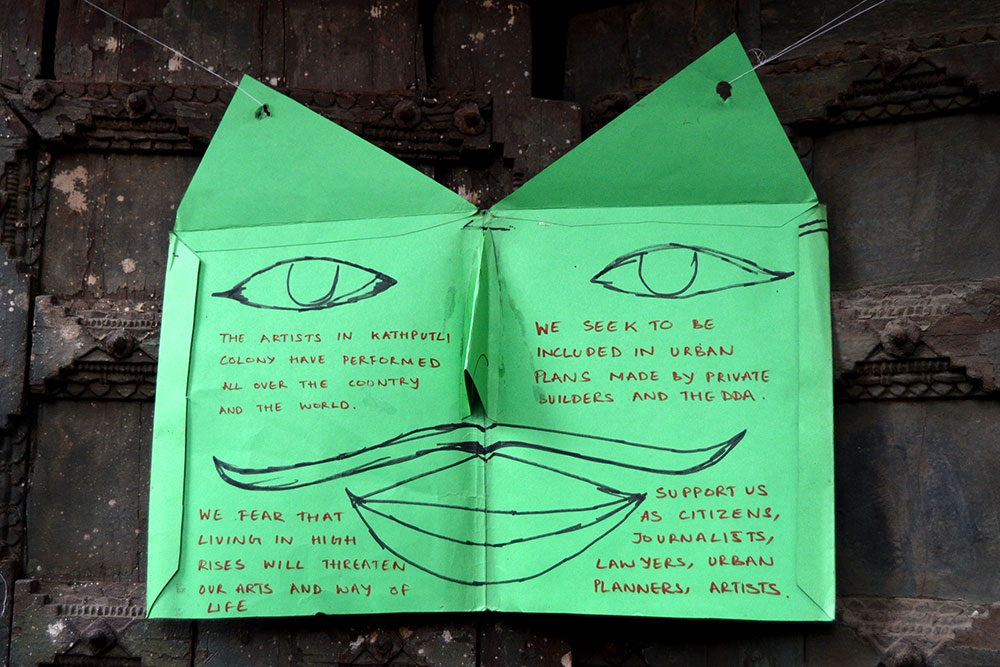 THE ARTISTS IN KATHPUTLI
COLONY HAVE PERFORMED
ALL OVER THE COUNTRY
AND THE WORLD.
WE SEEK TO BE
INCLUDED IN URBAN
PLANS MADE BY PRIVATE
BUILDERS AND THE DDA.
WE FEAR THAT
LIVING IN HIGH
RISES WILL THREATEN
OUR ARTS AND WAY OF
LIFE
SUPPORT US
AS CITIZENS,
JOURNALISTS,
LAWYERS, URBAN
PLANNERS, ARTISTS.